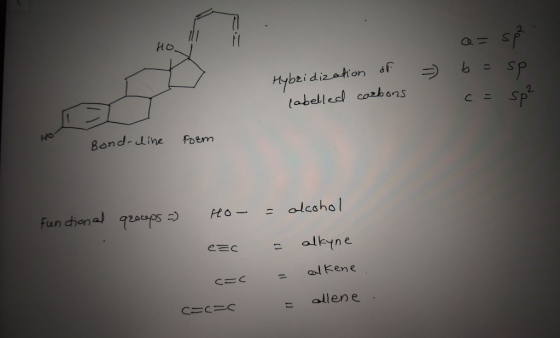 HO
HO
Bond-line form
Hybridization of labelled carbons ⇒
a = sp²
b = sp
c = sp²
Functional groups ⇒ HO— = alcohol
C≡C = alkyne
C=C = alkene
C=C=C = allene.